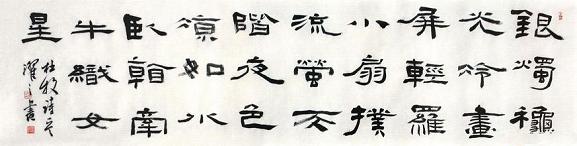 銀燭龝
光冷畫
屏輕羅
小扇撲
流螢天
階夜色
涼如水
臥看牽
牛織女
星
杜牧詩
書